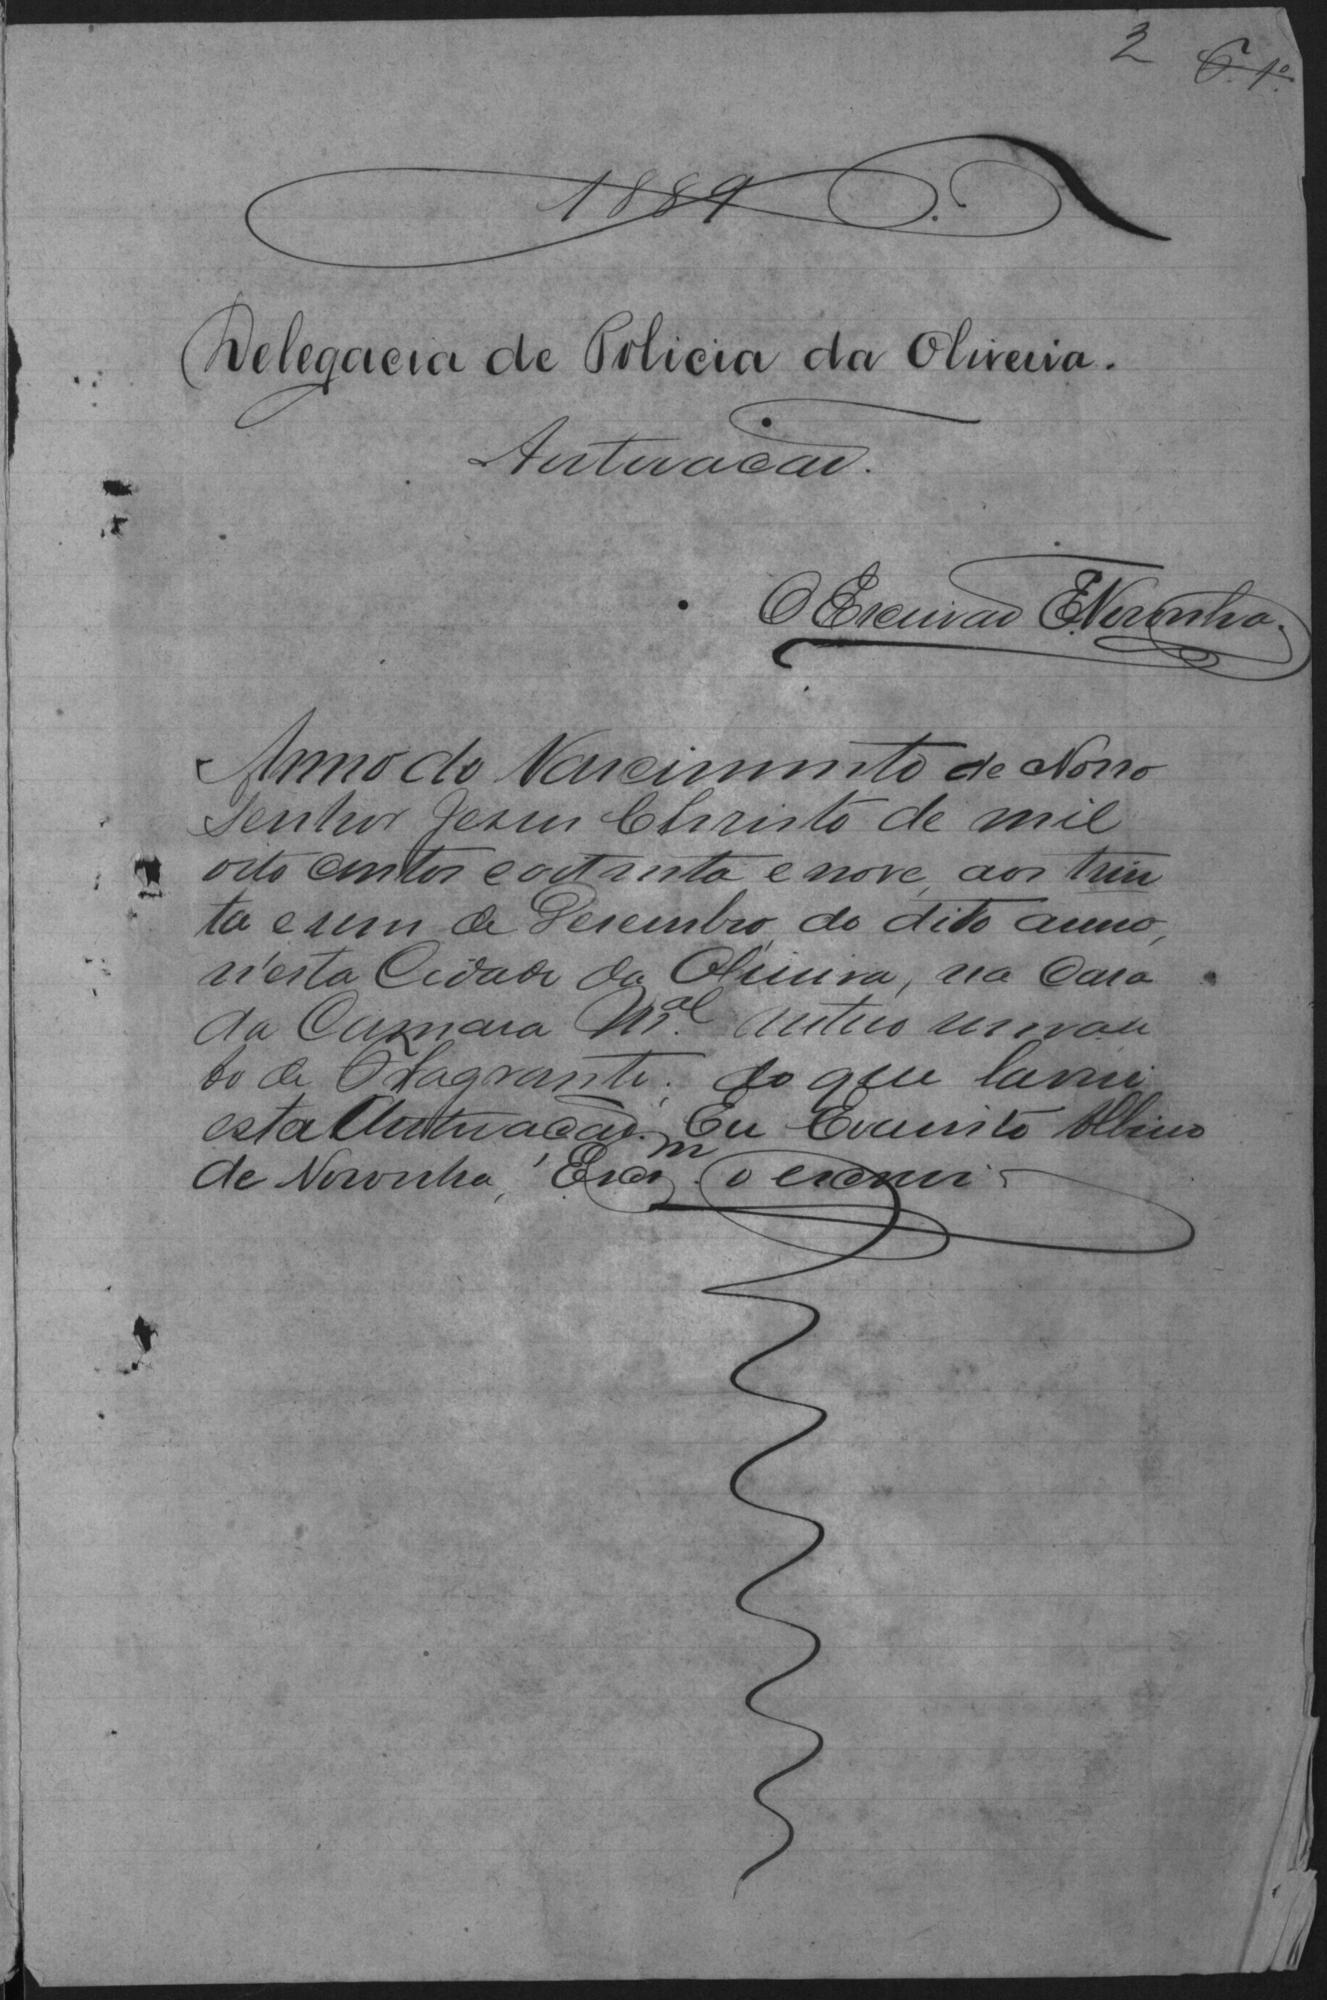 2 F. 1º
1889.
Delegacia de Policia da Oliveira.
Autuação.
O Escrivão E. Noronha.
Anno do Nascimento de Nosso
Senhor Jesus Christo de mil
oito centos e oitenta e nove, aos trin
ta e um de Desembro do dito anno,
n'esta Cidade da Oliveira, na Casa
da Camara M.al autuo um au
to de Flagrante; do que lavrei
esta Autuação. Eu Evaristo Albino
de Noronha, Escr.m o escrevi